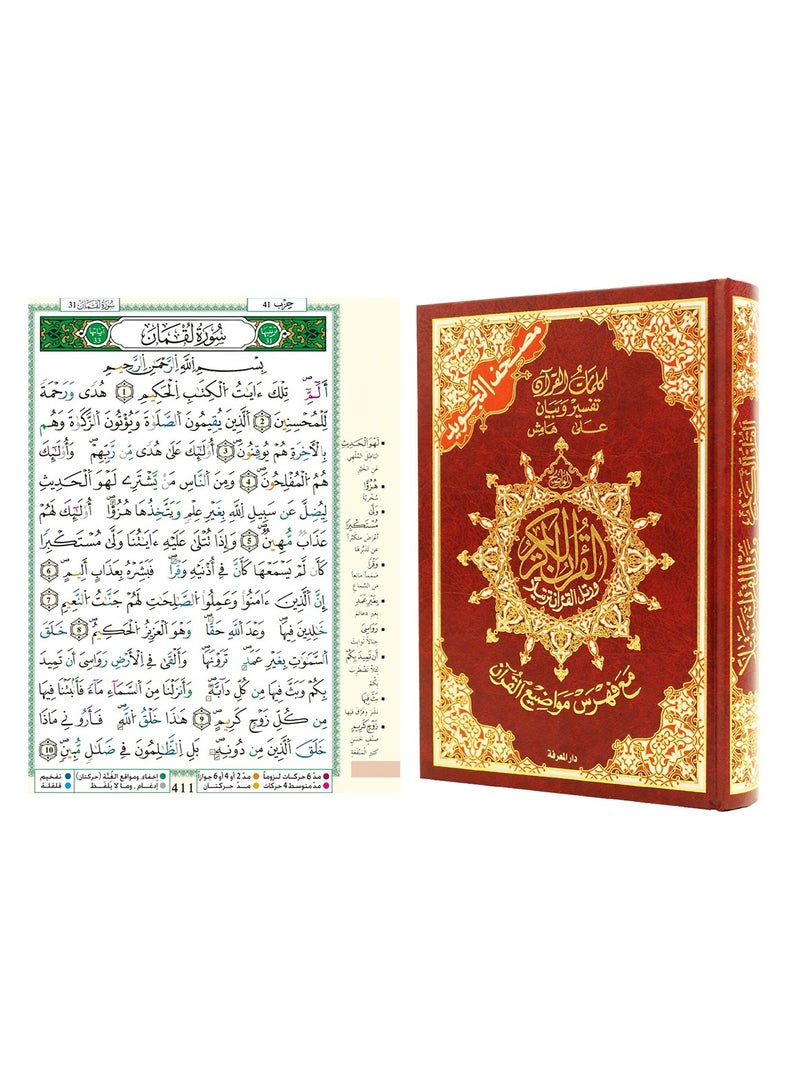 حِزْب 41
سُورَةُ لُقْمَان 31
ترتيبها 31
سُورَةُ لُقْمَان
آياتها 33
بِسْمِ اِللَّهِ اِلرَّحْمَٰنِ اِلرَّحِيمِ
أَلَٓمِّٓ تِلْكَ ءَايَٰتُ اُلْكِتَٰبِ اِلْحَكِيمِ 1 هُدًى وَرَحْمَةً
لِّلْمُحْسِنِينَ 2 اَلَّذِينَ يُقِيمُونَ اَلصَّلَوٰةَ وَيُؤْتُونَ اَلزَّكَوٰةَ وَهُم
بِالْأَخِرَةِ هُمْ يُوقِنُونَ 3 أُوْلَٰٓئِكَ عَلَىٰ هُدًى مِّن رَّبِّهِمْ وَأُوْلَٰٓئِكَ
هُمُ اُلْمُفْلِحُونَ 4 وَمِنَ اَلنَّاسِ مَنْ يَّشْتَرِے لَهْوَ اَلْحَدِيثِ
لِيُضِلَّ عَن سَبِيلِ اِللَّهِ بِغَيْرِ عِلْمٍ وَيَتَّخِذُهَا هُزُؤًا أُوْلَٰٓئِكَ لَهُمْ
عَذَابٌ مُّهِينٌ 5 وَإِذَا تُتْلَىٰ عَلَيْهِ ءَايَٰتُنَا وَلَّىٰ مُسْتَكْبِرًا
كَأَن لَّمْ يَسْمَعْهَا كَأَنَّ فِے أُذْنَيْهِ وَقْرًا فَبَشِّرْهُ بِعَذَابٍ اَلِيمٍ 6
إِنَّ اَلَّذِينَ ءَامَنُوا وَعَمِلُوا اُلصَّٰلِحَٰتِ لَهُمْ جَنَّٰتُ اُلنَّعِيمِ 7
خَٰلِدِينَ فِيهَا وَعْدَ اَللَّهِ حَقًّا وَهُوَ اَلْعَزِيزُ اُلْحَكِيمُ 8 خَلَقَ
اَلسَّمَٰوَٰتِ بِغَيْرِ عَمَدٍ تَرَوْنَهَا وَأَلْقَىٰ فِے اِلْأَرْضِ رَوَٰسِيَ أَن تَمِيدَ
بِكُمْ وَبَثَّ فِيهَا مِن كُلِّ دَآبَّةٍ وَأَنزَلْنَا مِنَ اَلسَّمَآءِ مَآءً فَأَنۢبَتْنَا فِيهَا
مِن كُلِّ زَوْجٍ كَرِيمٍ 9 هَٰذَا خَلْقُ اُللَّهِ فَأَرُونِے مَاذَا
خَلَقَ اَلَّذِينَ مِن دُونِهِ بَلِ اِلظَّٰلِمُونَ فِے ضَلَٰلٍ مُّبِينٍ 10
لَهْوَ الْحَدِيثِ
الباطل المُلهي
عن الخير
هُزُؤًا
سُخْريّة
وَلَّىٰ
مُسْتَكْبِرًا
أعرَضَ متكبّراً
عن تدبُّرها
وَقْرًا
صمماً مانعاً
من السّماع
بِغَيْرِ عَمَدٍ
بغير دعائم
رَوَاسِيَ
جبالاً ثوابت
أَن تَمِيدَ بِكُمْ
لئلّا تضطرب
بكُم
بَثَّ فِيهَا
نشر وفرّق فيها
زَوْجٍ كَرِيمٍ
صنف حسن
كثير المنفعة
مدّ 6 حركات لزوماً
مدّ 2 أو 4 أو 6 جوازاً
إخفاء، ومواقع الغُنَّة (حركتان)
تفخيم
مدّ متوسط 4 حركات
مدّ حركتان
إدغام، وما لا يُلفَظ
قلقلة
411
مصحف التجويد
كلمات القرآن
تفسير وبيان
على هامش
القرآن الكريم
ورتل القرآن ترتيلا
مع فهرس مواضيع القرآن
دار المعرفة